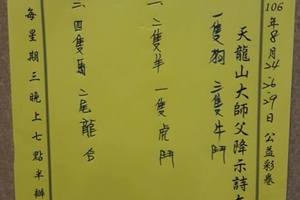 106年8月24.26.29日公益彩卷
天龍山大師父降示詩
一隻狗 三隻牛鬥
一、二隻羊 一隻虎鬥
二、四隻馬 二尾龍
每星期三晚上七點半辦